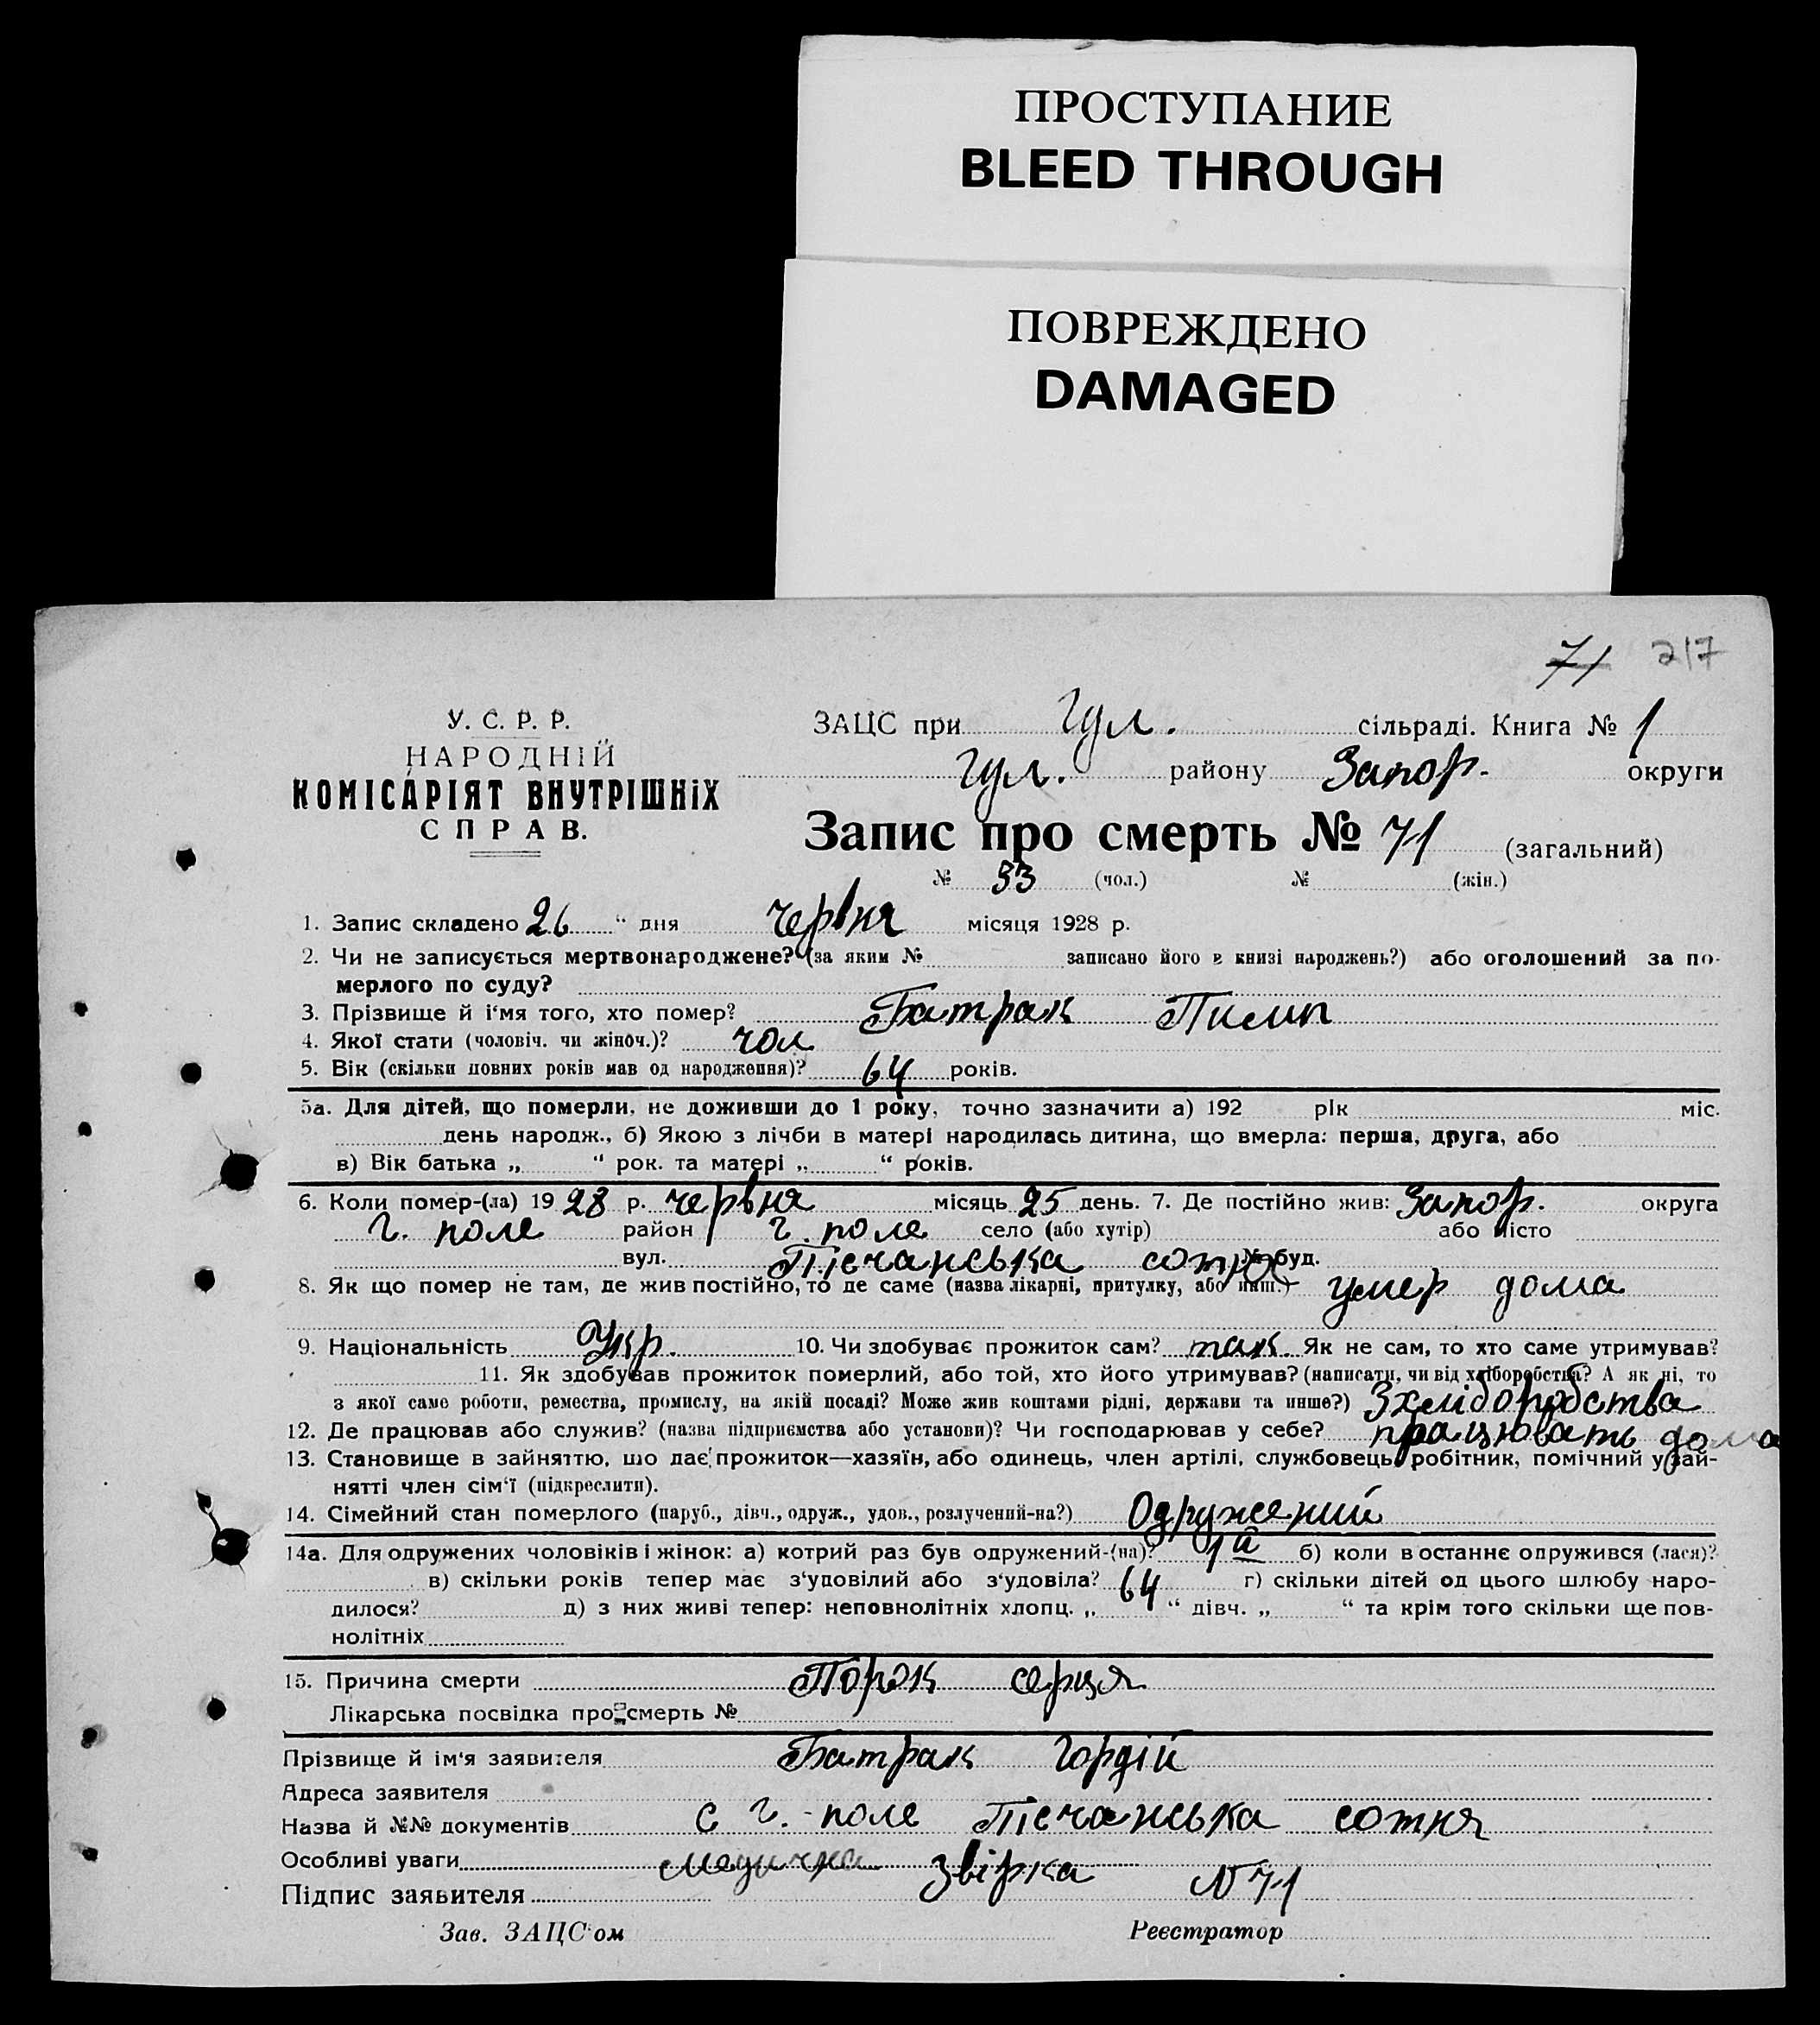 ПРОСТУПАНИЕ
BLEED THROUGH
ПОВРЕЖДЕНО
DAMAGED
71 217
У. С. Р. Р.
НАРОДНІЙ
КОМІСАРІЯТ ВНУТРІШНІХ
СПРАВ.
ЗАЦС при Гул. сільраді. Книга № 1
Гул. району Запор. округи
Запис про смерть № 71 (загальний)
№ 33 (чол.) № (жін.)
1. Запис складено 26 “ дня червня місяця 1928 р.
2. Чи не записується мертвонароджене? (за яким № записано його в книзі народжень?) або оголошений за по-
мерлого по суду?
3. Прізвище й і‘мя того, хто помер? Батрак Пилип
4. Якої стати (чоловіч. чи жіноч.)? чол
5. Вік (скільки повних років мав од народження)? 64 років.
5а. Для дітей, що померли, не доживши до 1 року, точно зазначити а) 192 рік міс.
день народж., б) Якою з лічби в матері народилась дитина, що вмерла: перша, друга, або
в) Вік батька „ “ рок. та матері „ “ років.
6. Коли помер-(ла) 19 28 р. червня місяць 25 день. 7. Де постійно жив: Запор. округа
Г. поле район Г. поле село (або хутір) або місто
вул. Пісчанська сотня № буд.
8. Як що помер не там, де жив постійно, то де саме (назва лікарні, притулку, або инш.) умер дома
9. Національність Укр. 10. Чи здобуває прожиток сам? так. Як не сам, то хто саме утримував?
11. Як здобував прожиток померлий, або той, хто його утримував? (написати, чи від хліборобства? А як ні, то
з якої саме роботи, ремества, промислу, на якій посаді? Може жив коштами рідні, держави та инше?) З хліборобства
12. Де працював або служив? (назва підприємства або установи)? Чи господарював у себе? працювать дома
13. Становище в зайняттю, що дає прожиток—хазяїн, або одинець, член артілі, службовець робітник, помічний у зай-
нятті член сім‘ї (підкреслити).
14. Сімейний стан померлого (паруб., дівч., одруж., удов., розлучений-на?) Одружений
14а. Для одружених чоловіків і жінок: а) котрий раз був одружений-(на)? 1й б) коли в останнє одружився (лася)?
в) скільки років тепер має з‘удовілий або з‘удовіла? 64 г) скільки дітей од цього шлюбу наро-
дилося? д) з них живі тепер: неповнолітніх хлопц. „ “ дівч. „ “ та крім того скільки ще пов-
нолітніх
15. Причина смерти Порок серця
Лікарська посвідка про смерть №
Прізвище й ім‘я заявителя Батрак Гордій
Адреса заявителя
Назва й №№ документів с Г.-поле Пісчанська сотня
Особливі уваги медична звірка N 71
Підпис заявителя
Зав. ЗАЦС‘ом Реєстратор